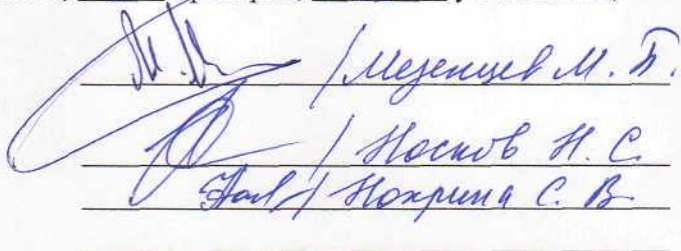 / Мезенцев М. П.
/ Носков Н. С.
/ Нохрина С. В.